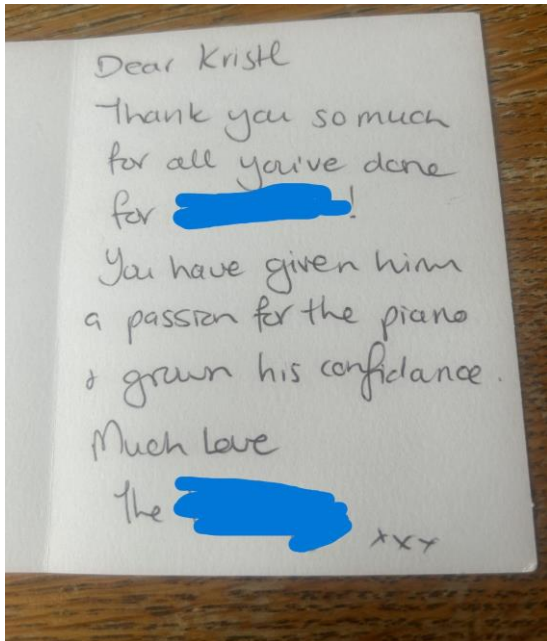 Dear Kristl
Thank you so much
for all you've done
for !
You have given him
a passion for the piano
& grown his confidance.
Much Love
The
xxx